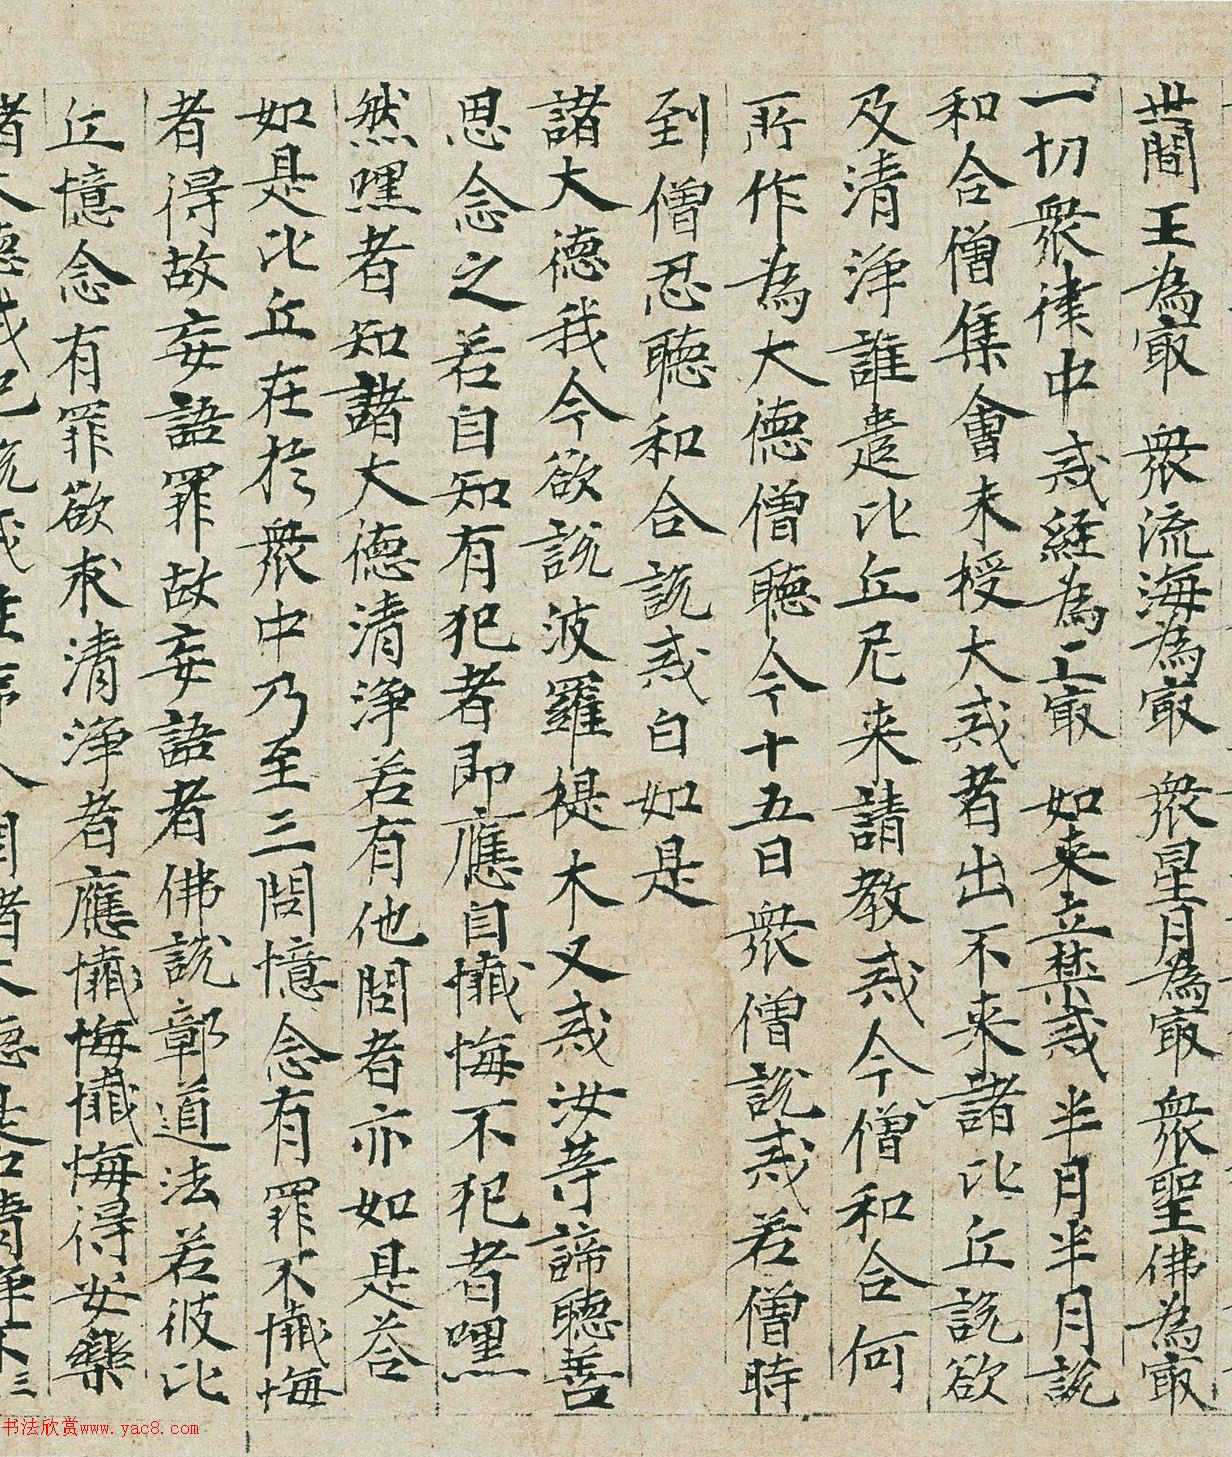 世間王為㝡　衆流海為㝡　衆星月為㝡　衆聖佛為㝡
一切衆律中　戒経為上㝡　如来立禁戒　半月半月説
和合僧集會未授大戒者出不来諸比丘説欲
及清淨誰遣比丘尼来請教戒今僧和合何
所作為大德僧聽今十五日衆僧説戒若僧時
到僧忍聽和合説戒白如是
諸大德我今欲説波羅提木叉戒汝等諦聽善
思念之若自知有犯者即應自懺悔不犯者嘿
然嘿者知諸大德清淨若有他問者亦如是荅
如是比丘在於衆中乃至三問憶念有罪不懺悔
者得故妄語罪故妄語者佛説鄣道法若彼比
丘憶念有罪欲求清淨者應懺悔懺悔得安樂
书法欣赏www.yac8.com